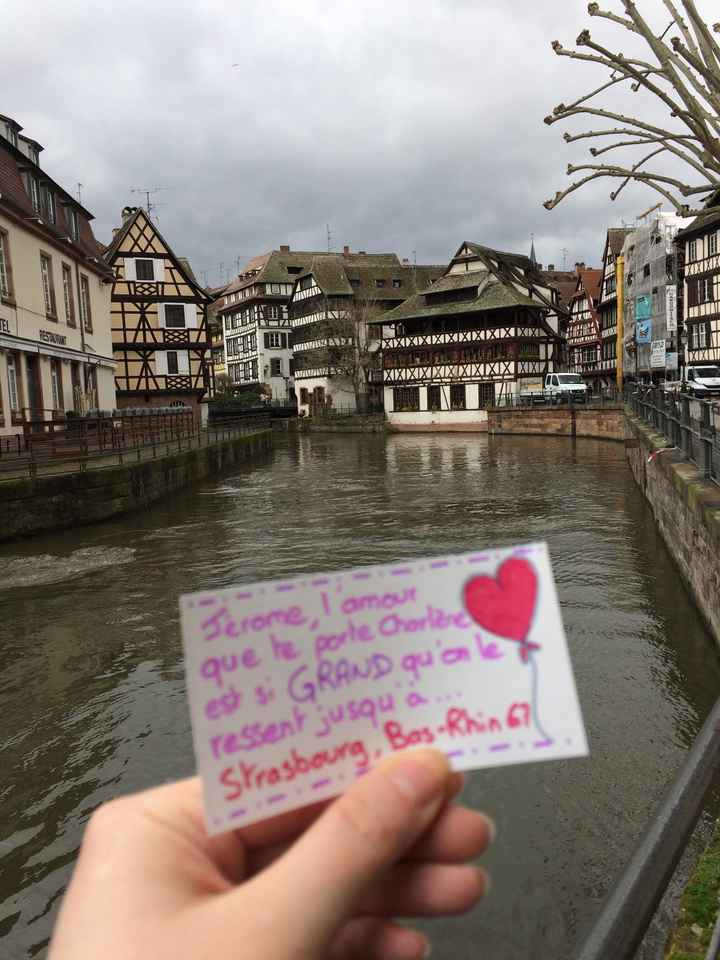 TEL RESTAURANT
Jérome, l'amour
que te porte Charlène
est si GRAND qu'on le
ressent jusqu'à...
Strasbourg, Bas-Rhin 67